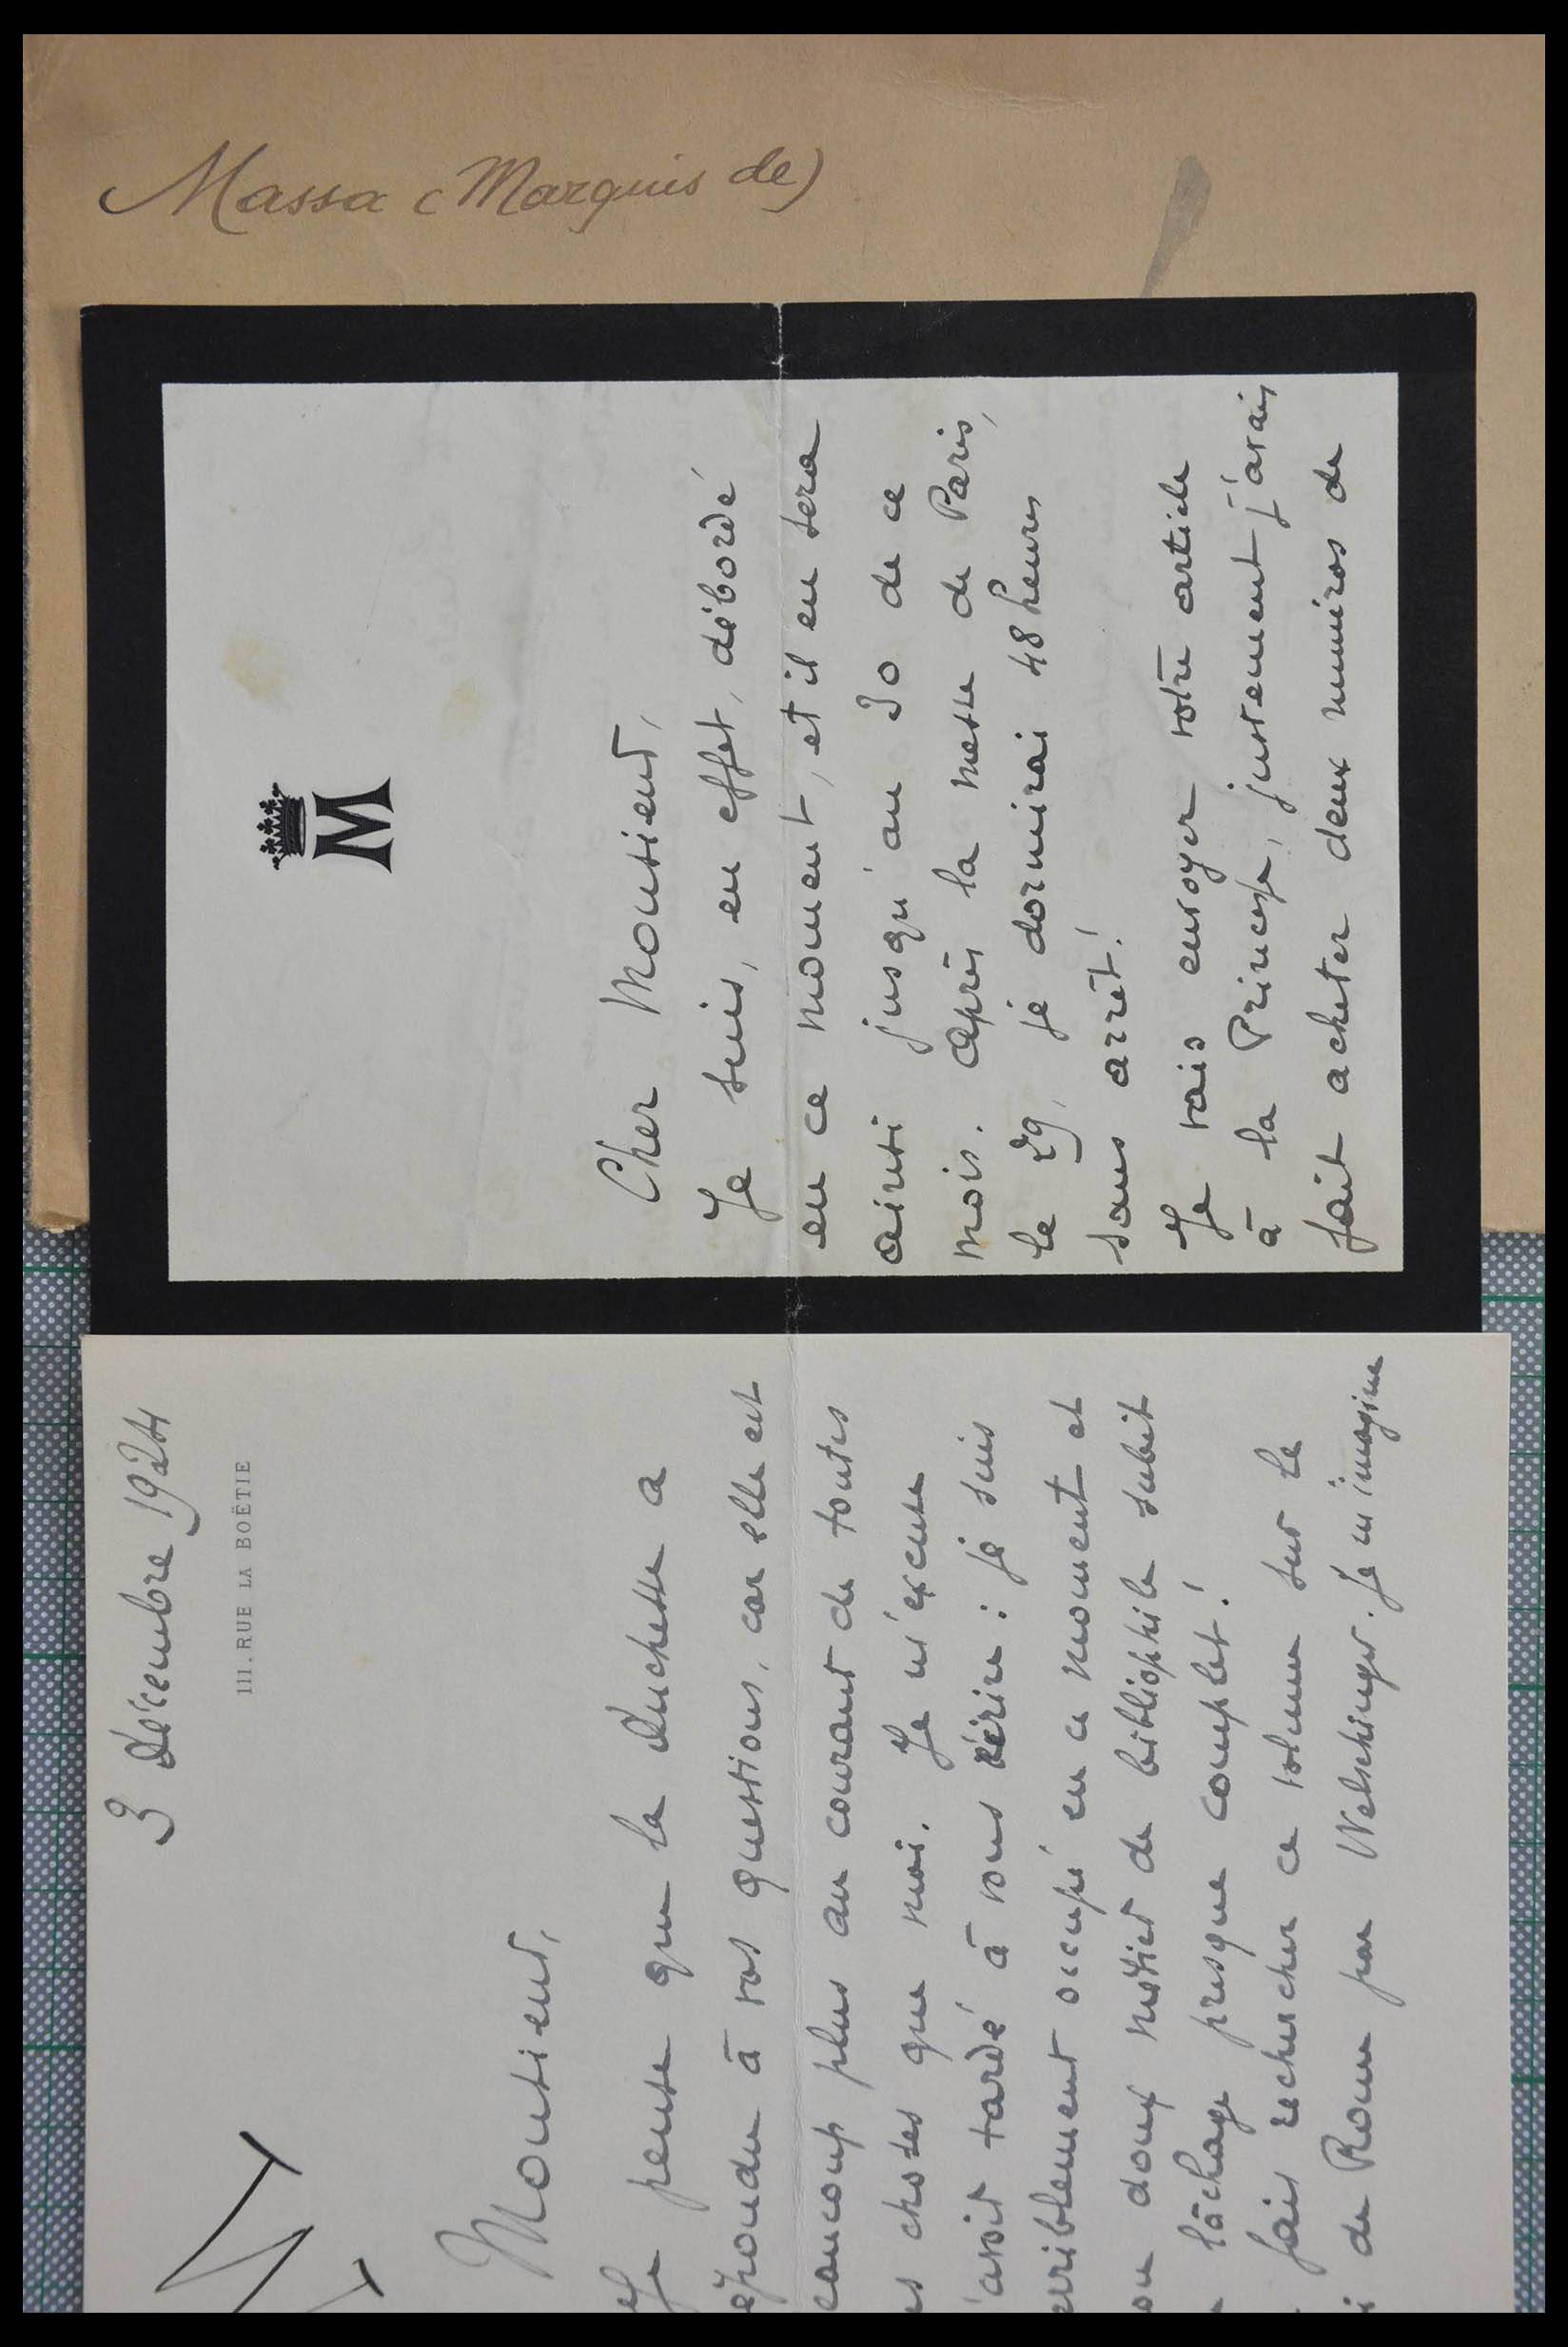 Massa (Marquis de)
M
Cher Monsieur,
Je suis, en effet, débordé
en ce moment, et il en sera
ainsi jusqu'au 30 de ce
mois. Après la messe de Paris,
le 29, je dormirai 48 heures
sans arrêt!
Je vais envoyer votre article
à la Princesse, justement j'avais
fait acheter deux numéros de
3 Décembre 1924
111. RUE LA BOËTIE
Monsieur,
Je pense que la Duchesse a
épondu à vos questions, car elle est
eaucoup plus au courant de toutes
es choses que moi. Je m'excuse
'avoir tardé à vous écrire : je suis
erriblement occupé en ce moment et
on doux métier de bibliophile subit
lâchage presque complet!
fais rechercher ce volume sur le
i de Rome par Welschinger. Je m'imagine